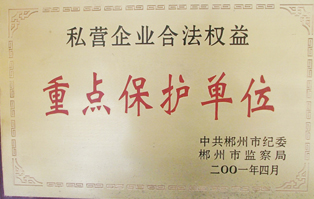 私营企业合法权益
重点保护单位
中共郴州市纪委
郴州市监察局
二〇〇一年四月